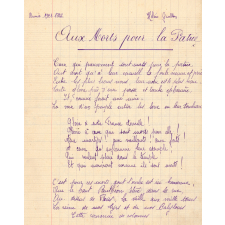 Aux Morts pour la Patrie
Ceux qui pieusement sont morts pour la patrie
Ont droit qu'à leur cercueil la foule vienne et prie
Entre les plus beaux noms leur nom est le plus beau
Toute gloire près d'eux passe et tombe éphémère
Et, comme ferait une mère
La voix d'un peuple entier les berce en leur tombeau
Gloire à notre France éternelle !
Gloire à ceux qui sont morts pour elle !
Aux martyrs ! aux vaillants ! aux forts !
A ceux qu'enflamme leur exemple
Qui veulent place dans le temple
Et qui mourront comme ils sont morts !
C'est pour ces morts dont l'ombre est
Que le haut Panthéon élève dans la nue
La reine de nos Tyrs et de nos Babylones
Cette couronne de colonnes